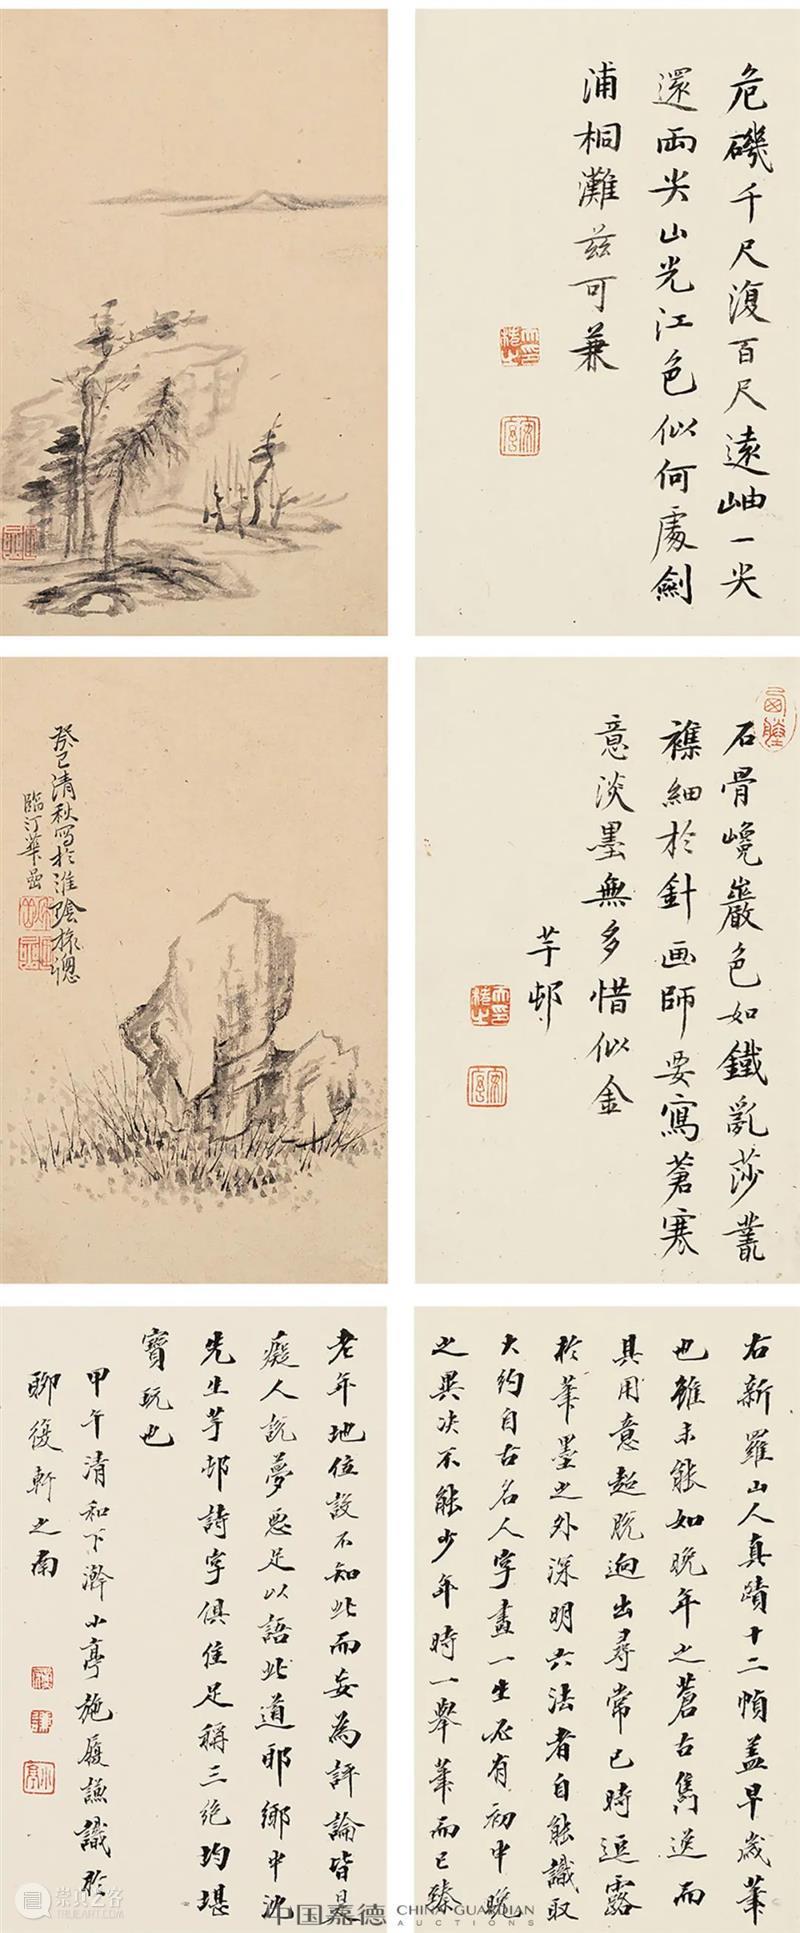 危磯千尺復百尺遠岫一尖
還兩尖山光江色似何處劍
浦桐灘茲可兼
癸巳清秋寫於淮陰旅窗
臨汀華嵒
石骨巉巖色如鐵亂莎叢
襍細於針画師要寫蒼寒
意淡墨無多惜似金
芋邨
右新羅山人真蹟十二幀蓋早歲筆
也雖未能如晚年之蒼古雋逸而
具用意超脫迥出尋常已時逗露
於筆墨之外深明六法者自能識取
大約自古名人字畫一生必有初中晚
之異决不能少年時一舉筆而已臻
老年地位設不知此而妄為評論皆是
癡人說夢惡足以語此道耶鄉中沈
先生芋邨詩字俱佳足稱三絶均堪
寶玩也
甲午清和下澣小亭施履謙識於
聊復軒之南
中国嘉德 CHINA GUARDIAN
AUCTIONS
崇真艺客